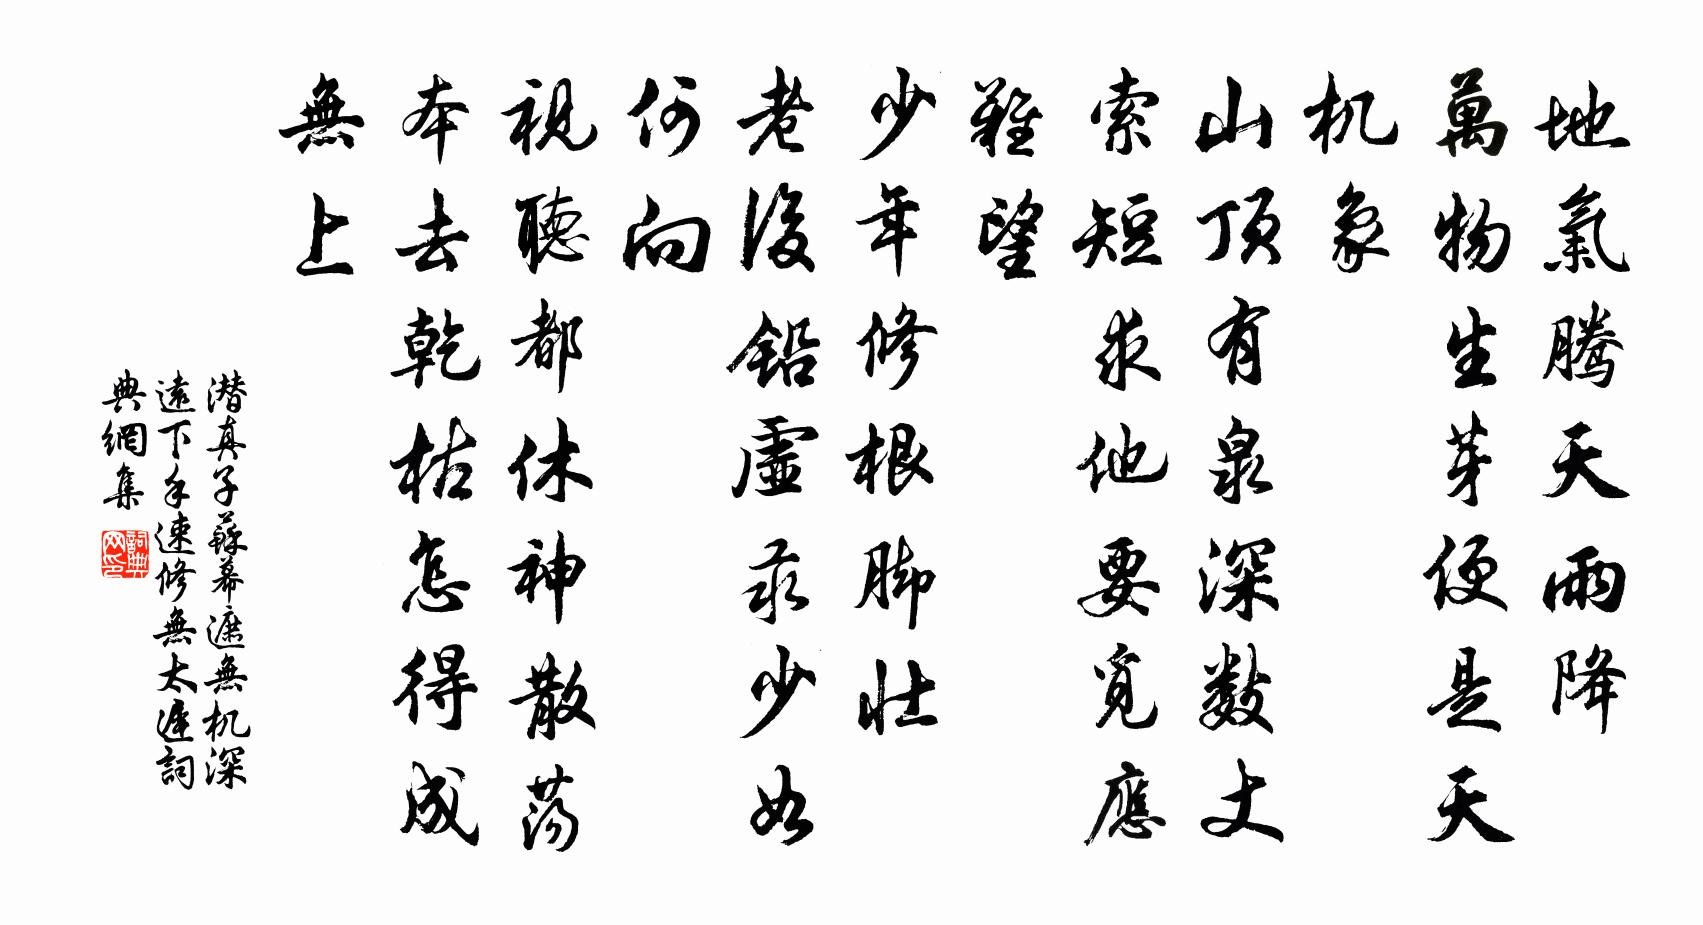 地氣騰天天雨降
萬物生芽便是天
机象
山頂有泉深数丈
索短求他要覓應
難望
少年修根脚壯
老後鉛虛汞少如
何向
視聽都休神散蕩
本去乾枯怎得成
無上
潜真子蘇幕遮無机深
遠下手速修無太遲詞
典網集
詞典网印